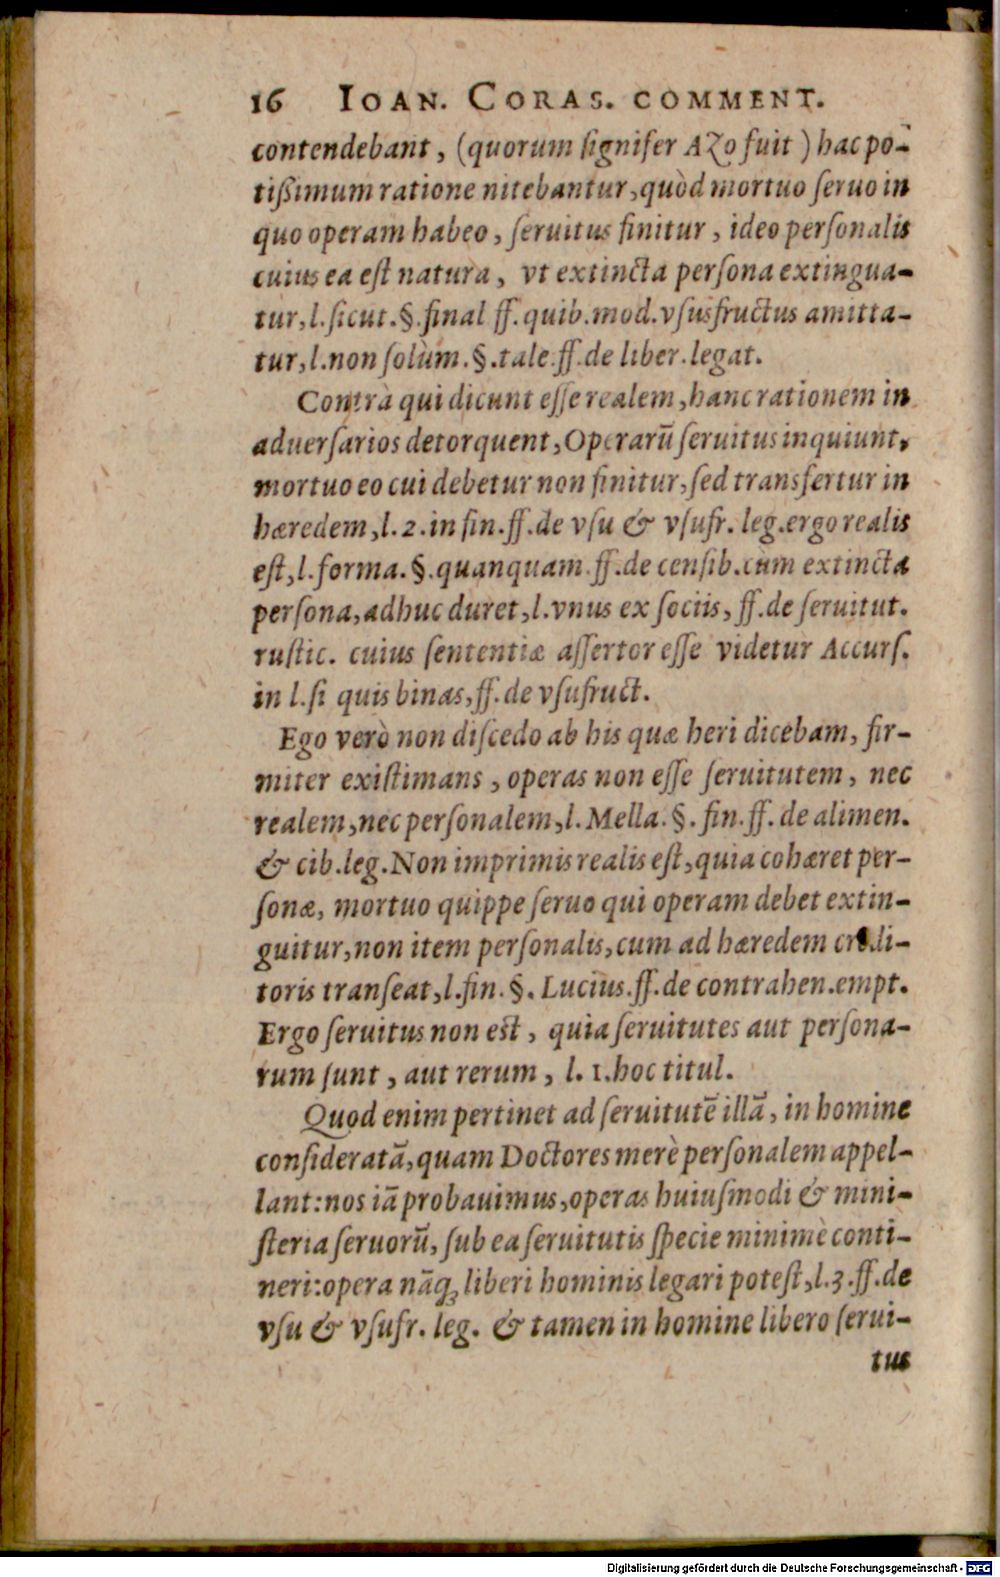 16 IOAN. CORAS. COMMENT.
contendebant, (quorum signifer AZo fuit) hac po-
tißimum ratione nitebantur, quòd mortuo seruo in
quo operam habeo, seruitus finitur, ideo personalis
cuius ea est natura, vt extincta persona extingua-
tur, l. sicut. §. final ff. quib. mod. vsusfructus amitta-
tur, l. non solùm. §. tale. ff. de liber. legat.
Contrà qui dicunt esse realem, hanc rationem in
aduersarios detorquent, Operarũ seruitus inquiunt,
mortuo eo cui debetur non finitur, sed transfertur in
hæredem, l. 2. in fin. ff. de vsu & vsufr. leg. ergo realis
est, l. forma. §. quanquam. ff. de censib. cùm extincta
persona, adhuc duret, l. vnus ex sociis, ff. de seruitut.
rustic. cuius sententiæ assertor esse videtur Accurs.
in l. si quis binas, ff. de vsufruct.
Ego verò non discedo ab his quæ heri dicebam, fir-
miter existimans, operas non esse seruitutem, nec
realem, nec personalem, l. Mella. §. fin. ff. de alimen.
& cib. leg. Non imprimis realis est, quia cohæret per-
sonæ, mortuo quippe seruo qui operam debet extin-
guitur, non item personalis, cum ad hæredem credi-
toris transeat, l. fin. §. Lucius. ff. de contrahen. empt.
Ergo seruitus non est, quia seruitutes aut persona-
rum sunt, aut rerum, l. 1. hoc titul.
Quod enim pertinet ad seruitutẽ illã, in homine
consideratã, quam Doctores merè personalem appel-
lant: nos iã probauimus, operas huiusmodi & mini-
steria seruorũ, sub ea seruitutis specie minimè conti-
neri: opera nãq; liberi hominis legari potest, l. 3. ff. de
vsu & vsufr. leg. & tamen in homine libero serui-
tus
Digitalisierung gefördert durch die Deutsche Forschungsgemeinschaft - DFG